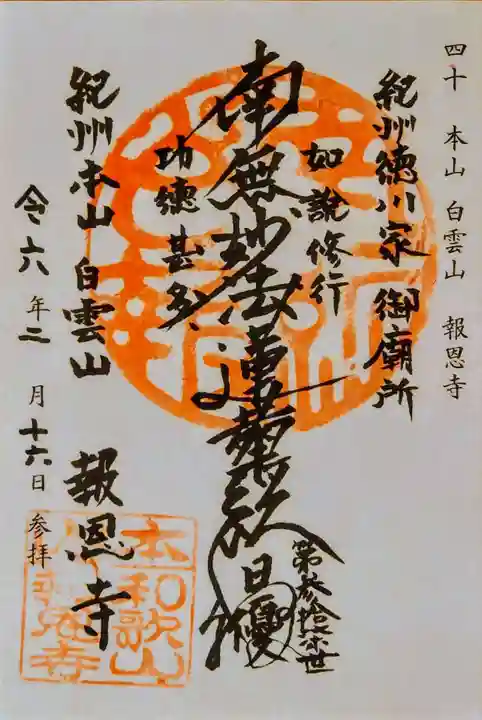 四十 本山 白雲山 報恩寺
紀州徳川家 御廟所
如説修行
南無妙法蓮華経
日
第参拾
世
功徳甚多
紀州本山 白雲山
報恩寺
令六年二月十六日 参拝
本
和歌山
報恩寺